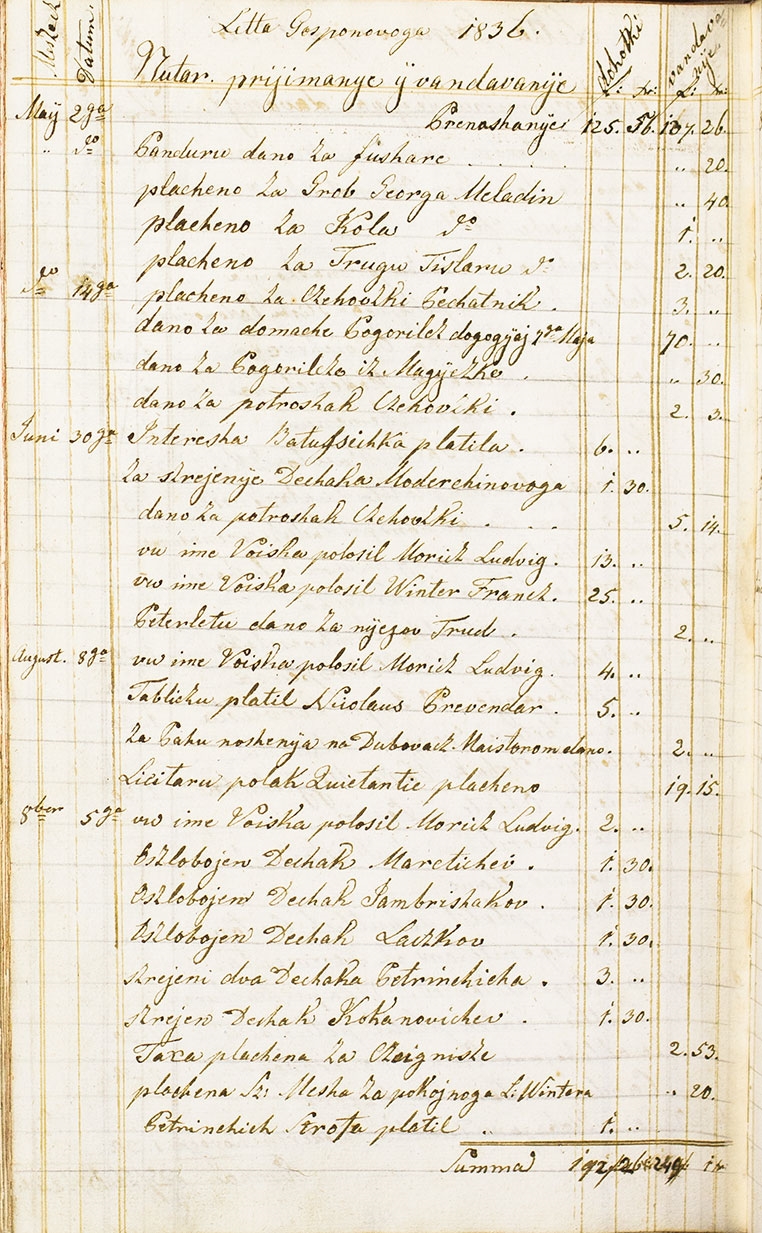 Litta Gosponovoga 1836.
Meszecz Datum. Nutar. prijimanye ÿ vandavanÿe dohotki vandavanÿe
f: xr: f: xr:
Maÿ 2ga Prenashanÿe 125. 56. 137. 26.
" do Panduru dano za fushare . . . . " 20.
placheno za Grob Georga Meladin " 40.
placheno za Kola do 1. "
placheno za Trugu Tislaru do 2. 20.
do 14ga placheno za Czehovzki Pechatnik . 3. "
dano za domache Pogorilcz dogogÿaj 7ga Maja 70. "
dano za Pogorilczo iz Magÿezke . " 30.
dano za potroshak Czehovzki . 2. 3.
Juni 30ga Interesha Batufsichka platila . 6. "
za szrejenÿe Dechaka Moderchinovoga 1. 30.
dano za potroshak Czehovzki . . . 5. 14.
vu ime Voiska polosil Moricz Ludvig. 13. "
vu ime Voiska polosil Winter Francz. 25. "
Peterletu dano za nÿegov Trud . 2. "
August. 8ga vu ime Voiska polosil Moricz Ludvig. 4. "
Tabliczu platil Nicolaus Prevendar . 5. "
za Pahu noshenÿa na Dubovacz Maistorom dano. 2. "
Licitaru polak Quietantie placheno 19. 15.
8ber 5ga vu ime Voiska polosil Moricz Ludvig. 2. "
Oszlobojen Dechak Maretichev . 1. 30.
Oszlobojen Dechak Jambrishakov . 1. 30.
Oszlobojen Dechak Laczkov 1. 30.
szrejeni dva Dechaka Petrinchicha . 3. "
szrejen Dechak Kokanovichev . 1. 30.
Taxa plachena za Czeignisze 2. 53.
plachena Sz: Mesha za pokojnoga L: Wintera " 20.
Petrinchich Strofu platil . 1. "
Summa 192 26 249 14